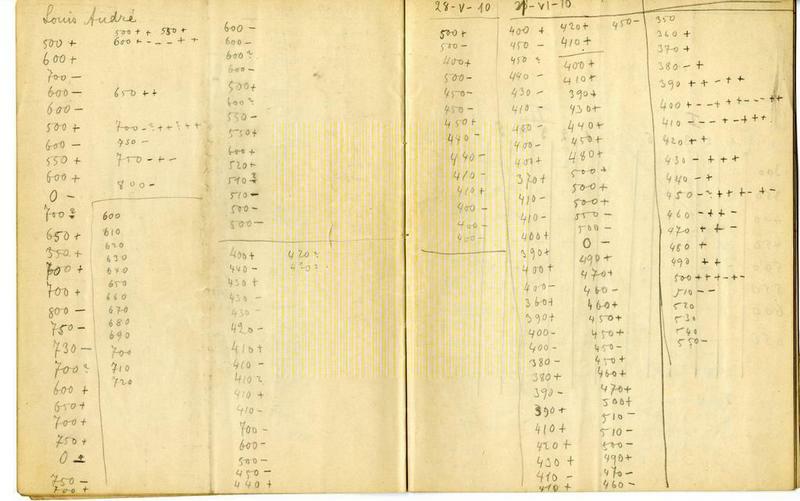 Louis André
500 + + 550 +
500 +
600 + - - - + +
600 +
700 -
600 -
650 + +
600 -
500 +
600 -
750 -
550 +
750 - + -
600 +
800 -
0 -
700 ?
650 +
350 +
600 +
700 +
800 -
750 -
730 -
700 ?
600 +
650 +
700 +
750 +
0 ±
750 -
700 +
600
610
620
630
640
650
660
670
680
690
700
710
720
600 -
600 -
600 ?
600 -
500 +
600 ?
550 -
550 +
600 +
520 +
510 -
500 -
500 -
400 +
420 ?
440 -
420 ?
430 +
430 -
430 -
420 -
410 +
410 -
410 ?
410 +
410 -
700 -
600 -
500 -
450 -
440 +
28-V-10
500 +
500 -
400 +
500 -
450 -
450 -
450 +
440 -
440 -
410 -
410 +
400 -
400 -
400 -
-VI-10
400 +
450 -
450 ?
440 -
430 -
410 -
400 -
400 -
400 +
370 +
410 -
410 -
400 +
390 +
400 +
400 -
360 +
390 +
400 -
400 -
380 -
380 +
390 -
390 +
410 +
420 +
430 +
410 -
410 +
420 +
410 +
400 +
410 +
390 +
430 +
440 +
450 +
480 +
500 +
500 +
500 +
550 -
500 -
0 -
490 +
470 +
460 -
460 +
450 +
450 +
450 -
450 +
460 +
470 +
500 +
510 -
510 -
500 -
490 +
470 -
460 -
450 -
350
360 +
370 +
380 - +
390 + + - + +
400 + - - + + - - - + +
410 - - - + - + + +
420 + +
430 - + + +
440 - +
450 - ? + + + - + -
460 - + + -
470 + + -
480 +
490 + +
500 + + + - + -
510 - -
520
530
540
550 -